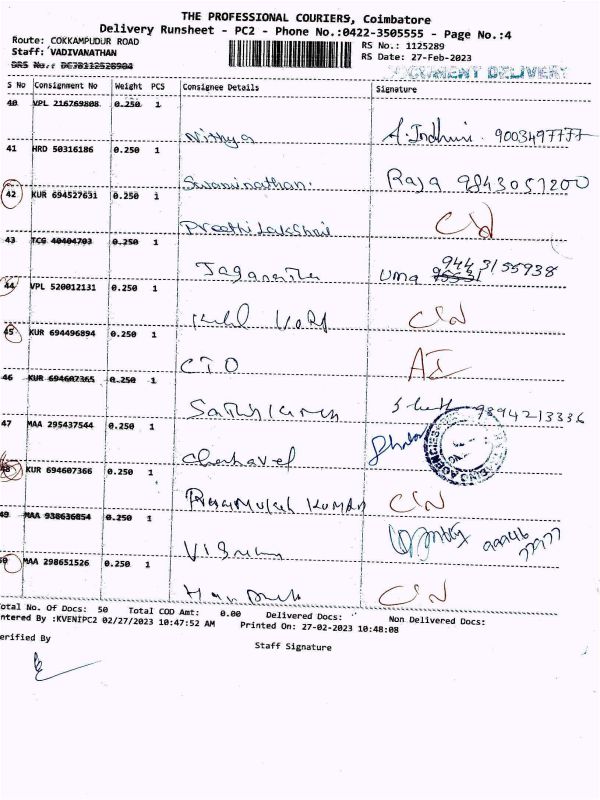 THE PROFESSIONAL COURIERS, Coimbatore
Delivery Runsheet - PC2 - Phone No.:0422-3505555 - Page No.:4
Route: COKKAMPUDUR ROAD
RS No.: 1125289
Staff: VADIVANATHAN
RS Date: 27-Feb-2023
DRS No.: DCJB112528904
DOCUMENT DELIVERY
S No Consignment No Weight PCS Consignee Details Signature
40 VPL 216769808 0.250 1
Nithya A. Indhu 9003497777
41 HRD 50316186 0.250 1
Swaminathan. Raja 9843051200
42 KUR 694527631 0.250 1
C/N
43 TCG 40404703 0.250 1
Uma 9443155938
44 VPL 520012131 0.250 1
C/N
45 KUR 694496894 0.250 1
CTO
46 KUR 694607365 0.250 1
9894213336
47 MAA 295437544 0.250 1
48 KUR 694607366 0.250 1
KUMAR C/N
49 MAA 938636854 0.250 1
50 MAA 298651526 0.250 1
C/N
Total No. Of Docs: 50 Total COD Amt: 0.00 Delivered Docs: Non Delivered Docs:
Entered By :KVENIPC2 02/27/2023 10:47:52 AM Printed On: 27-02-2023 10:48:08
Verified By
Staff Signature